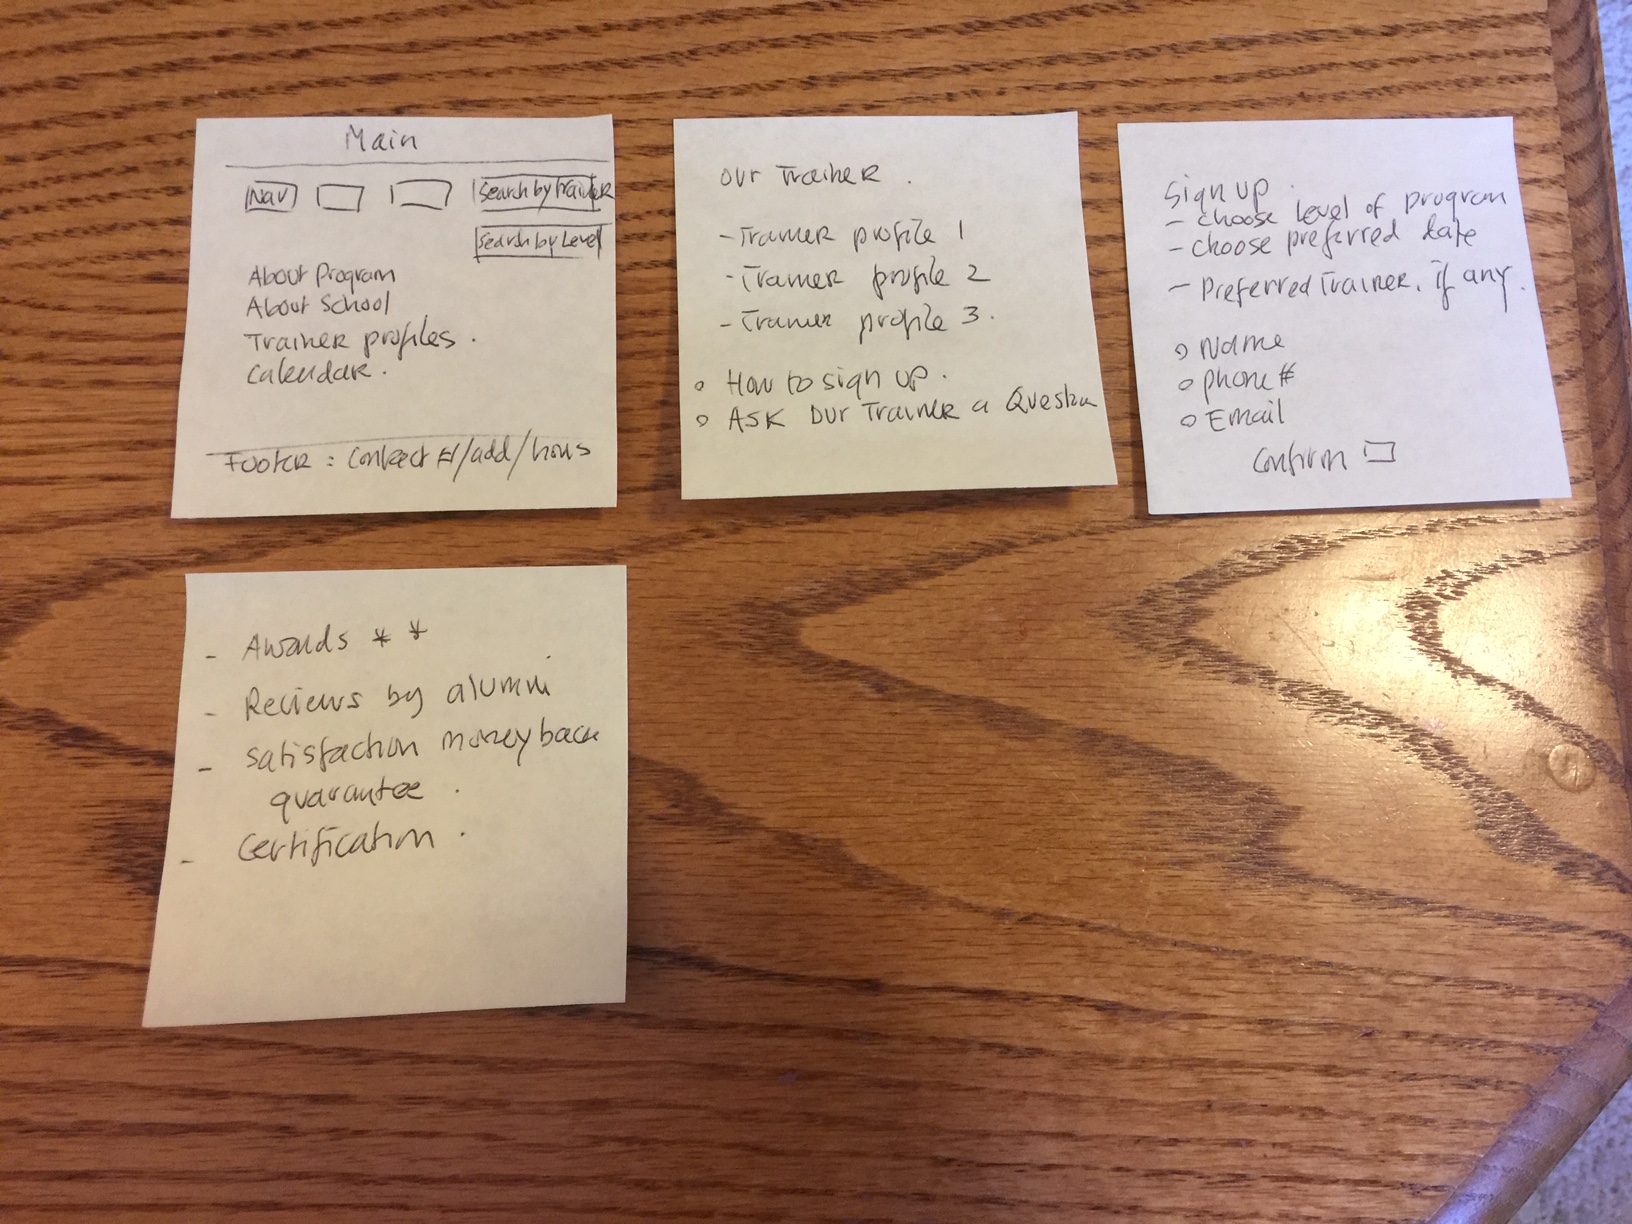 Main
Nav
Search by Trainer
Search by Level
About Program
About School
Trainer profiles.
Calendar.
Footer : Contact #/add/hours
Our Trainer.
- Trainer profile 1
- Trainer profile 2
- Trainer profile 3.
How to sign up.
Ask Our Trainer a Question
Sign up.
- Choose Level of program
- Choose preferred date
- Preferred Trainer, if any.
Name
Phone #
Email
Confirm
- Awards * *
- Reviews by alumni
- Satisfaction moneyback
guarantee.
- Certification.